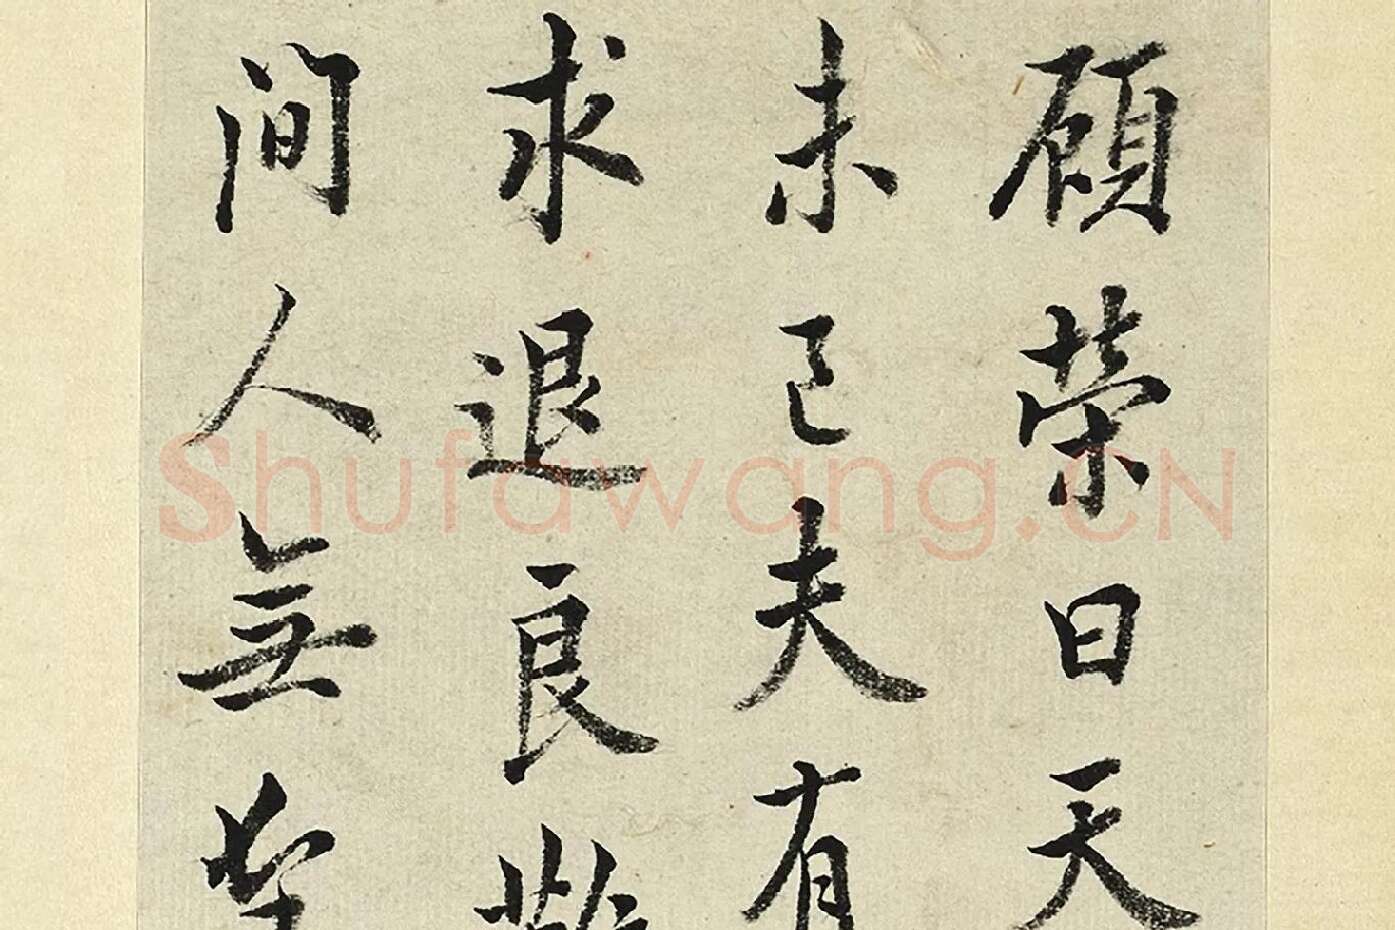 顧榮曰天
未已夫有
求退良難
間人無望
Shufawang.CN